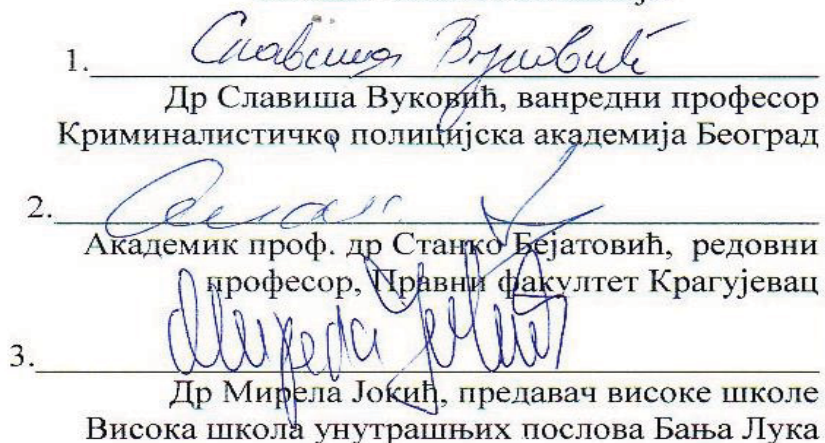 1. Славиша Вуковић
Др Славиша Вуковић, ванредни професор
Криминалистичко полицијска академија Београд
2.
Академик проф. др Станко Бејатовић, редовни
професор, Правни факултет Крагујевац
3. Мирела Јокић
Др Мирела Јокић, предавач високе школе
Висока школа унутрашњих послова Бања Лука